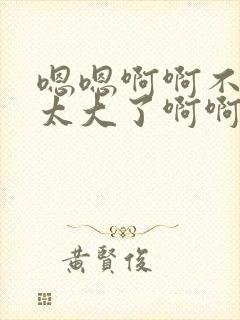 嗯嗯啊啊不
太大了啊啊
黄賢俊